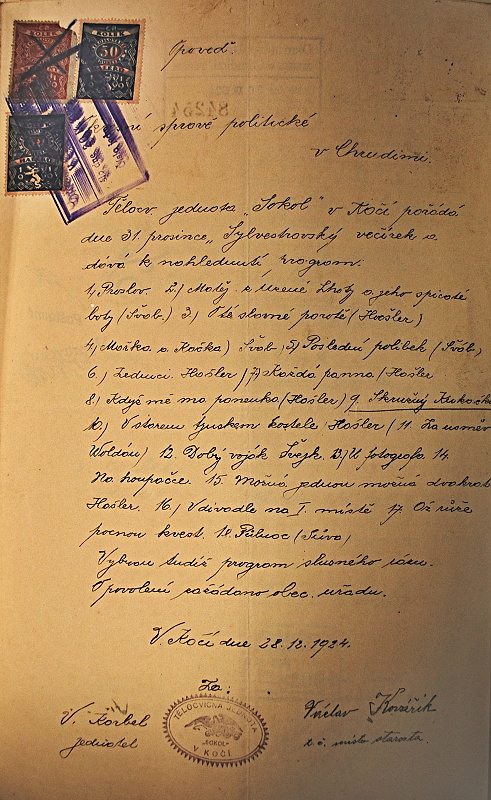 KOLEK
50
KOLEK
84264
správě politické
v Chrudimi.
Tělocv. jednota "Sokol" v Kočí pořádá
dne 31. prosince "Sylvestrovský večírek a
dává k nahlednutí program:
1.) Proslov. 2.) Matěj z Uzené Lhoty a jeho špičaté
boty (Šváb.) 3.) O té slavné parotě (Hašler)
4.) Mařka a Kačka) Šváb 5.) Poslední polibek (Šváb.)
6.) Zedníci. Hašler) 7.) Každá panna (Hašler
8.) Když mě má panenka (Hašler) 9. Skrušný
10.) V starém týnském kostele (Hašler) 11. Za úsměv
Woldán) 12. Dobrý voják Švejk. 13.) U fotografa. 14.
Na houpačce. 15. Možná jednou možná dvakrát
Hašler. 16.) V divadle na I. místě 17. Až růže
pocnou kvést. 18. Půlnoc (Tůva)
Vybrán tudíž program slušného rázu.
O povolení zažádáno obec. úřadu.
V Kočí dne 28.12.1924.
Za:
V. Korbel
jednatel
TĚLOCVIČNÁ JEDNOTA
"SOKOL"
V KOČÍ.
Václav Kovářík
t. č. místo starosta.